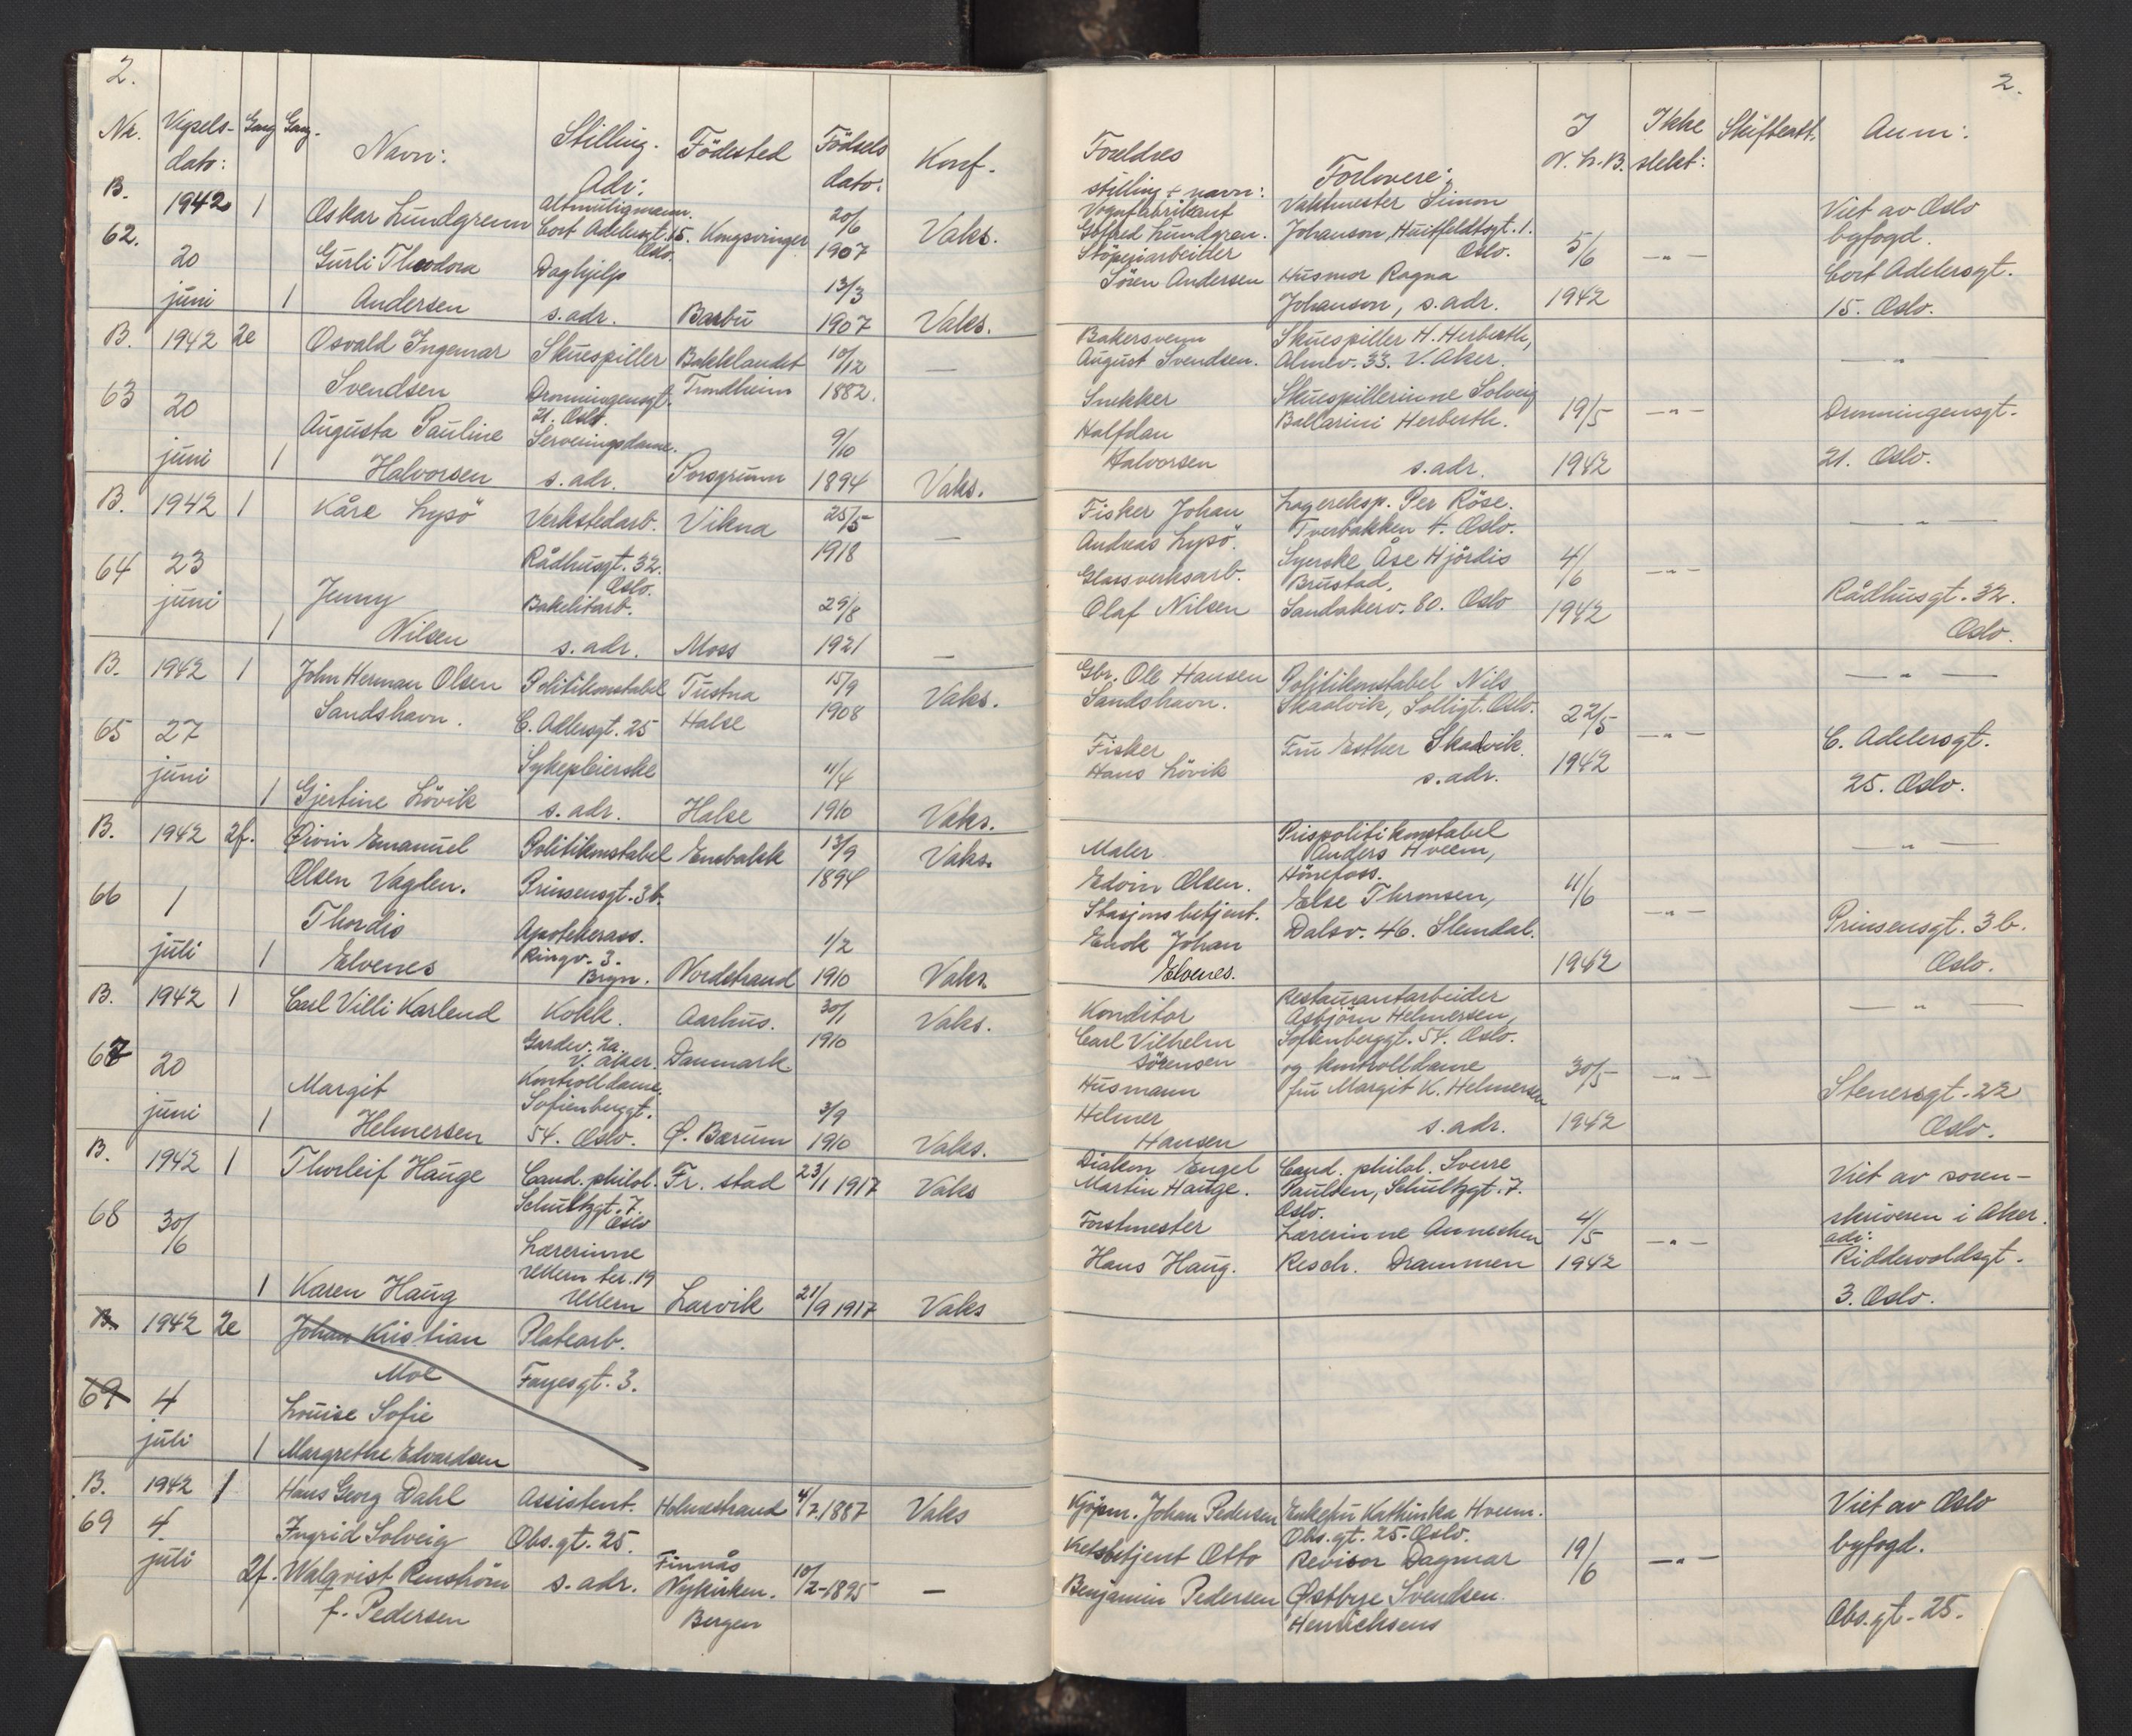 2.
Nr. Vigsels- Gang Gang. Navn: Stilling. Födested Födsels Konf.
dato: Adr. dato:
B. 1942 1 Oskar Lundgrenn Altmuligmann. 20/6
62. Cort Adelersgt. 15. Kongsvinger 1907 Vaks.
Oslo.
20 Gurli Theodora Daghjelp 13/3
juni 1 Andersen s. adr. Barbu 1907 Vaks.
B. 1942 2e Osvald Ingemar Skuespiller Bakklandet 10/12 —
63 20 Svendsen Dronningensgt. Trondheim 1882.
21. Oslo.
Augusta Pauline Serveringsdame. 9/10
juni 1 Halvorsen s. adr. Porsgrunn 1894 Vaks.
B. 1942 1 Kåre Lysö Verkstedarb. Vikna 25/5 —
64 23 Rådhusgt. 32. 1918
Oslo.
juni Jenny Bakelitarb. 29/8
1 Nilsen s. adr. Moss 1921 —
B. 1942 1 John Herman Olsen Politikonstabel Tustna 15/9 Vaks.
65 27 Sandshavn. C. Adlersgt. 25 Halse 1908
juni Sykepleierske 11/4
1 Gjertine Lövik s. adr. Halse 1910 Vaks.
B. 1942 2f. Øivin Emanuel Politikonstabel Enebakk 13/9 Vaks.
66 1 Olsen Vaglen. Prinsensgt. 3b. 1894
Thordis Apotekerass. 1/2
juli 1 Elvenes Ringv. 3. Nordstrand 1910 Vaks
Bryn.
B. 1942 1 Carl Villi Karlend Kokk. Aarhus. 30/1 Vaks.
67 20 Gardev. 2a. Danmark 1910
V. Aker.
Margit Kontrolldame.
juni Sofienberggt. 3/9
1 Helmersen 54. Oslo. Ø. Bærum 1910 Vaks.
B. 1942 1 Thorleif Hauge Cand. philol. Fr. stad 23/1 1917 Vaks
68 30/6 Schultzgt. 7.
Oslo
Lærerinne
Ullern ter. 19
1 Karen Haug Ullern Larvik 21/9 1917 Vaks
B. 1942 2e Johan Kristian Platearb.
Moe Fayesgt. 3.
69 4 Louise Sofie
juli 1 Margrethe Edvardsen
B. 1942 1 Hans Georg Dahl Assistent. Holmestrand 4/7.1887 Vaks
69 4 Ingrid Solveig Obs. gt. 25.
juli 2f. Walqvist Renström s. adr. Finnås 10/2-1895 —
Nykirken.
f. Pedersen Bergen
2.
Foreldres Forlovere: I Ikke Skifteatt. Anm:
stilling + navn: N. L. B. slekt:
Vognfabrikant Vaktmester Simon Viet av Oslo
Gotfred Lundgren. Johanson, Huitfeldtsgt. 1. byfogd.
Stöperiarbeider Oslo. 5/6 — " — Cort Adelersgt.
Sören Andersen Husmor Ragna
Johanson, s. adr. 1942 15. Oslo.
Bakersvenn Skuespiller H. Herberth, — " —
August Svendsen. Almev. 33. V. Aker.
Snekker Skuespillerinne Solveig 19/5 — " — Dronningensgt.
Halfdan Ballarini Herberth.
Halvorsen s. adr. 1942 21. Oslo.
Fisker Johan Lagereksp. Per Röse. — " —
Andreas Lysö. Tverbakken 4. Oslo.
Glassverksarb. Syerske Åse Hjördis 4/6 — " —
Brustad.
Olaf Nilsen Sandakerv. 80. Oslo 1942 Rådhusgt. 32.
Oslo.
Gbr. Ole Hansen Politikonstabel Nils — " —
Sandshavn. Skaalvik, Solligt. Oslo. 22/5 — " — C. Adelersgt.
Fisker Fru Esther Skaalvik.
Hans Lövik s. adr. 1942 25. Oslo.
Maler Prispolitikonstabel — " —
Anders Hveem,
Edvin Olsen. Hönefoss. 11/6 — " —
Stasjonsbetjent. Else Thronsen,
Enok Johan Dalsv. 46. Slemdal. Prinsensgt. 3b.
Elvenes. 1942 Oslo.
Konditor Restaurantarbeider — " —
Asbjörn Helmersen,
Carl Vilhelm Sofienberggt. 54. Oslo.
Sörensen og kontrolldame 30/5 — " —
Husmann fru Margit K. Helmersen Stenersgt. 22
Helmer s. adr. 1942 Oslo.
Hansen
Diakon Engel Cand. philol. Sverre Viet av soren-
Martin Hauge. Paulsen, Schultzgt. 7. skriveren i Aker.
Oslo.
Forstmester Lærerinne Annechen 4/5 — " — adr:
Hans Haug. Resch. Drammen 1942 Riddervoldsgt.
3. Oslo.
Kjöpm. Johan Pedersen Enkefru Kathinka Hveem. Viet av Oslo
Obs. gt. 25. Oslo. byfogd.
betjent Otto Revisor Dagmar 19/6 — " —
Benjamin Pedersen Østbye Svendsen.
Henrichsens Obs. gt. 25.